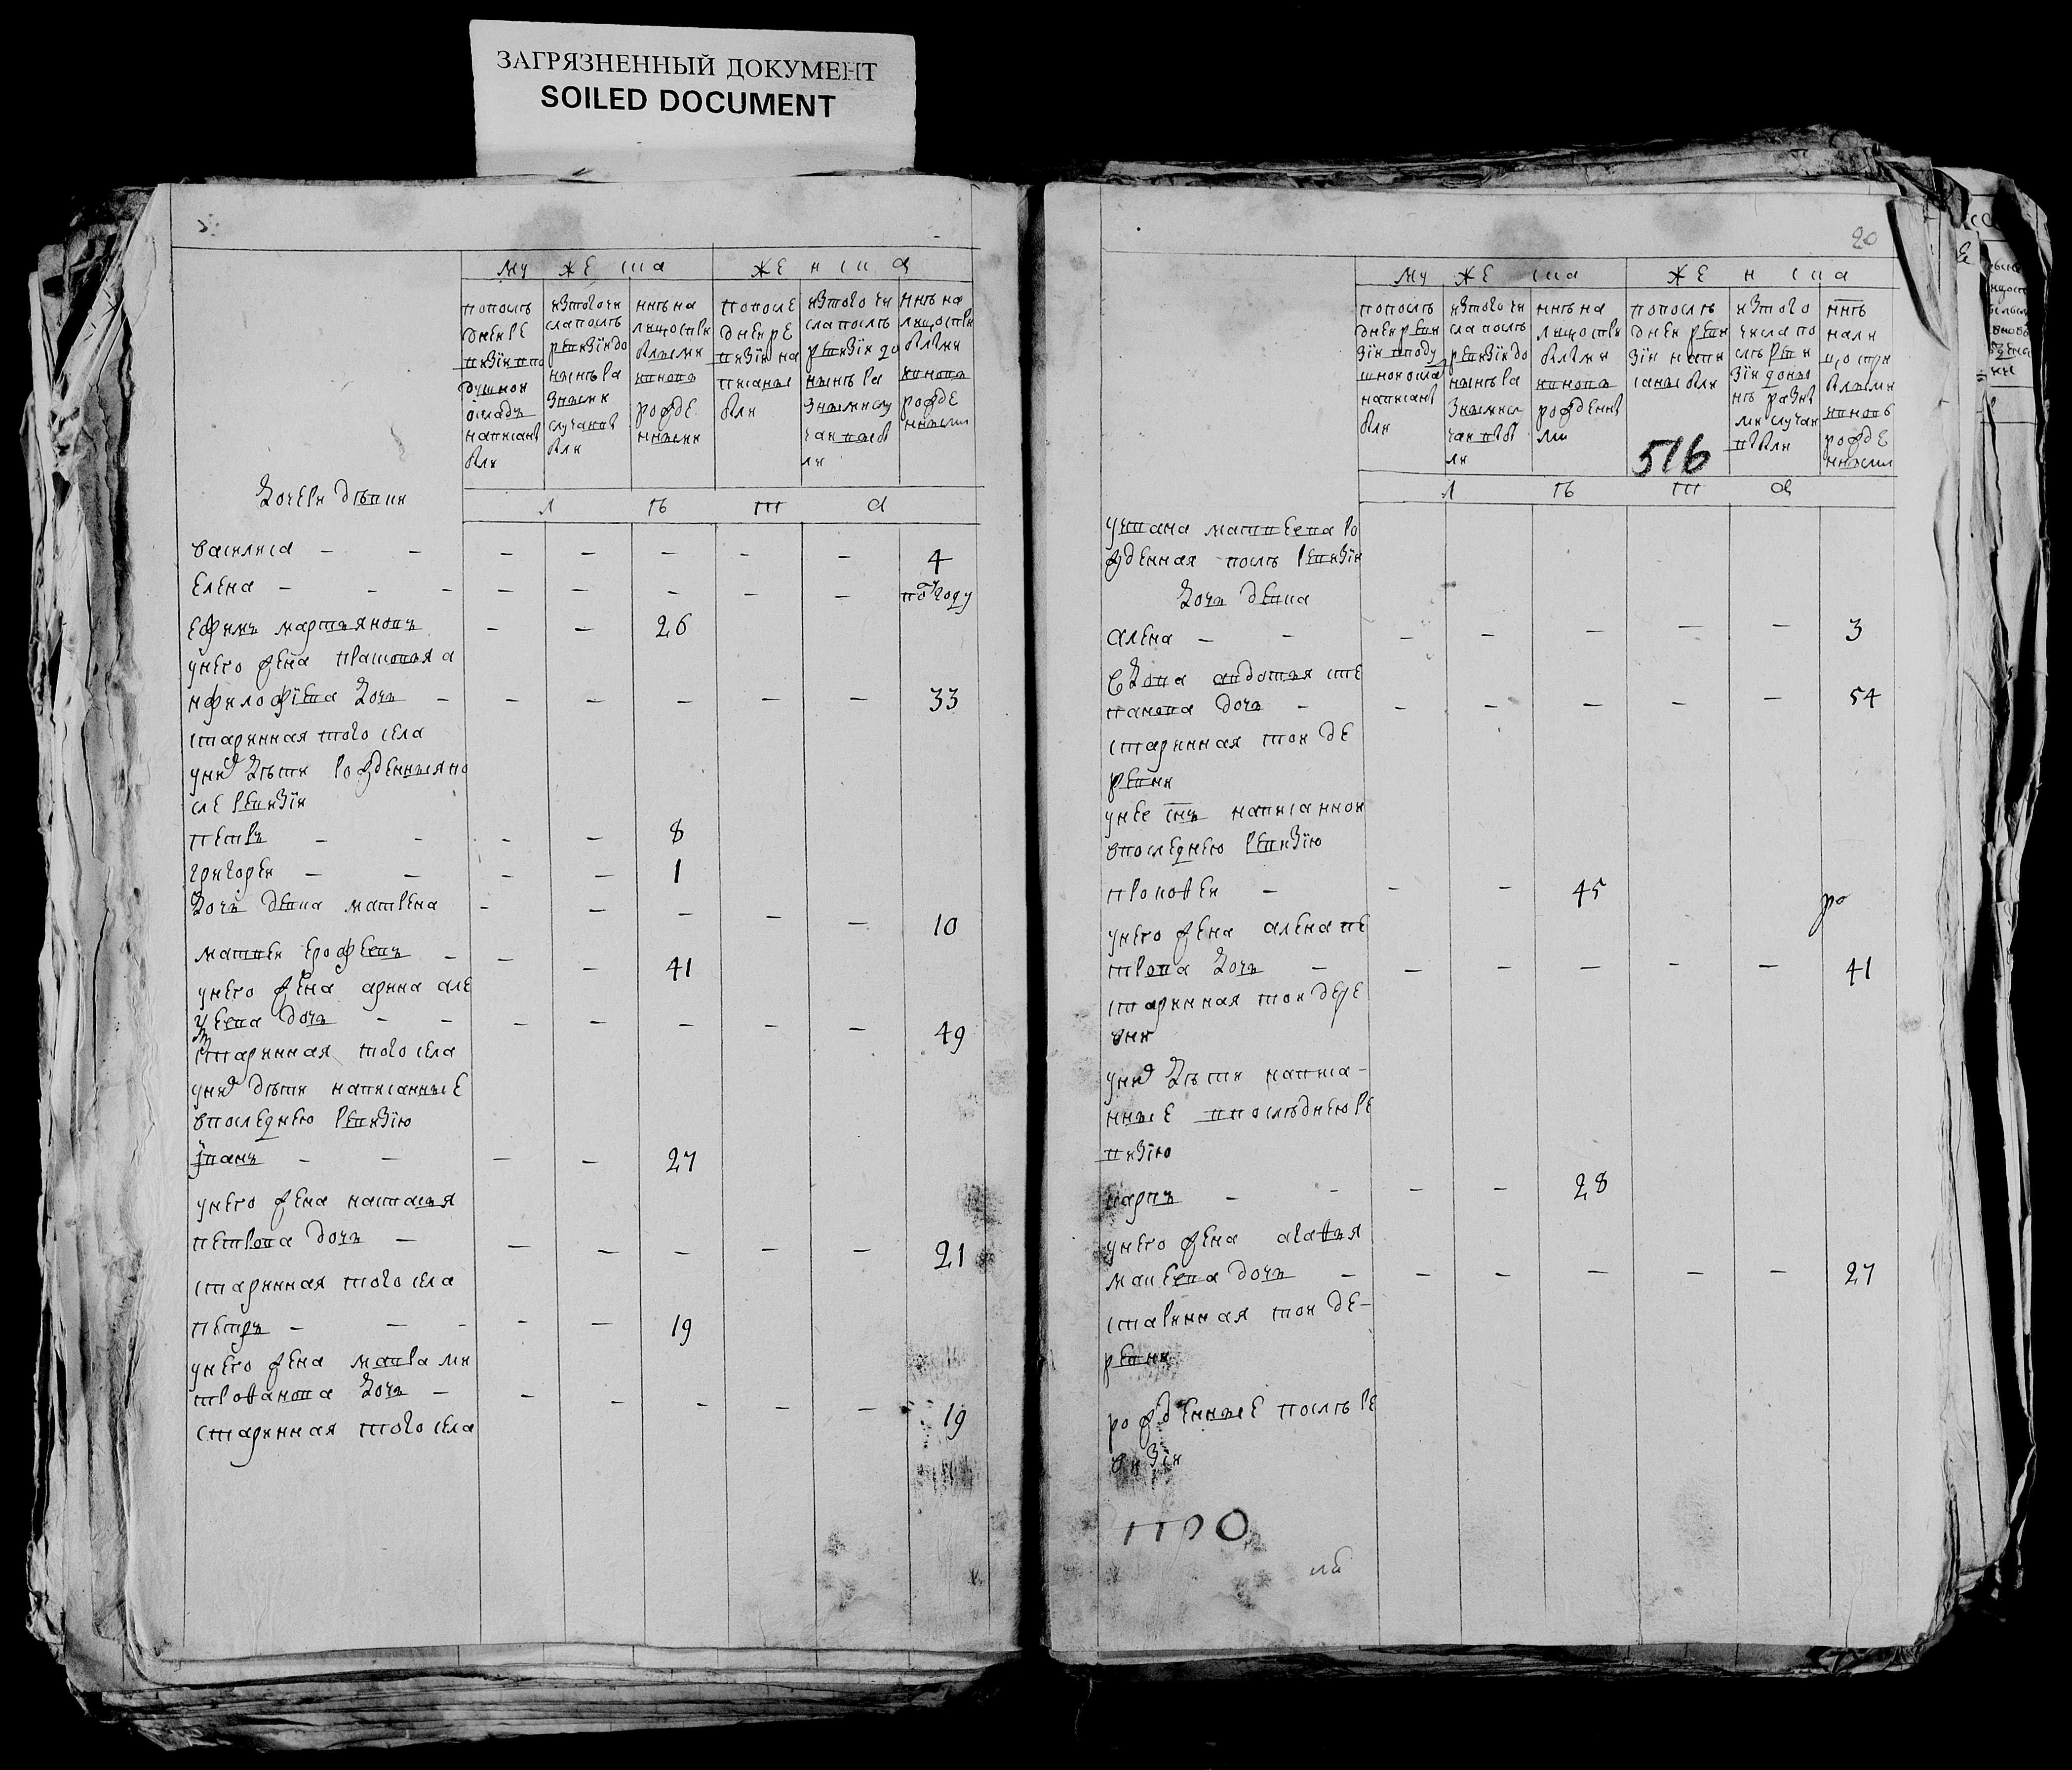 ЗАГРЯЗНЕННЫЙ ДОКУМЕНТ
SOILED DOCUMENT
мужеска
женска
попослѣ
дней ре
визїи впо
душной
окладъ
написанѣ
были
изтого чи
сла послѣ
ревизїи до
нынѣ ра
зными
случаевъ
были
ннѣ на
лицо стры
былыми
ивновь
рожде
нными
попосле
дней ре
визїи на
писаны
были
изтого чи
сла послѣ
ревизїи до
нынѣ ра
зными слу
чаи выбы
ли
ннѣ на
лицо
ивновь
рожде
нными
лѣта
дочери дѣвки
василиса
4
елена
по году
ефимъ мартьяновъ
26
унего жена прасковья а
нфилофїева дочь
33
старинная того села
уних дѣти рожденныя по
сле ревизїи
петръ
8
григорей
1
дочь девка матрена
10
матвей ерофеевъ
41
унего жена арина але
ѯеева дочь
49
старинная того села
уних дѣти написанные
впоследнею ревизїю
іванъ
27
унего жена настасья
петрова дочь
21
старинная того села
петръ
19
унего жена мавра ми
трофанова дочь
19
старинная того села
20
мужеска
женска
попослѣ
дней реви
зїи вподу
шной окла
написанѣ
были
изтого чи
сла послѣ
ревизїи до
нынѣ ра
зными слу
чаи выбы
ли
ннѣ на
лицо
ивновь
рожденны
ми
попослѣ
дней реви
зїи напи
саны были
изтого
числа по
слѣ реви
зїи доны
нѣ разны
ми случаи
были
ннѣ
нали
цо
ивновь
рожде
нными
516
лѣта
уивана матвеева ро
жденная послѣ ревизїи
дочь девка
алена
3
вдова авдотья сте
панова дочь
54
старинная той де
ревни
унее снъ написанной
впоследнею ревизїю
прокофей
45
ро
унего жена алена пе
трова дочь
41
старинная той дере
вни
уних дѣти написа-
нные впослѣднею ре
визїю
карпъ
28
унего жена агафья
макеева дочь
27
старинная той де-
ревни
рожденные послѣ ре
визїи
про